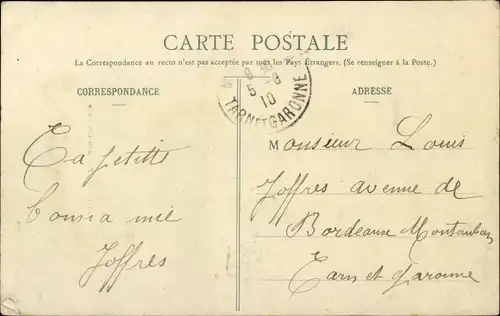 CARTE POSTALE
La Correspondance au recto n'est pas acceptée par tous les Pays Étrangers. (Se renseigner à la Poste.)
CORRESPONDANCE
Ta petitte
bonna mie
Joffres
5-8
10
TARN ET GARONNE
ADRESSE
Monsieur Louis
Joffres avenue de
Bordeaux Montauban
Tarn et Garonne